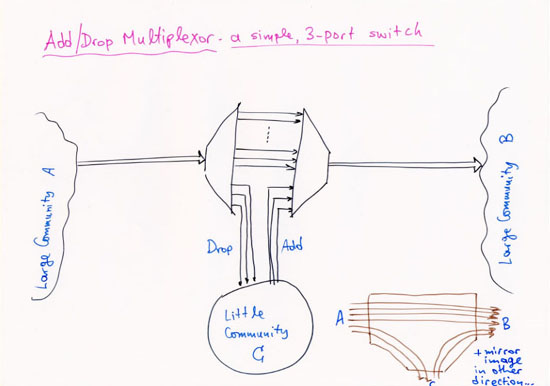 Add/Drop Multiplexor - a simple, 3-port switch
Large Community A
Large Community B
Drop
Add
Little
Community
C
A
B
+ mirror
image
in other
direction...
C